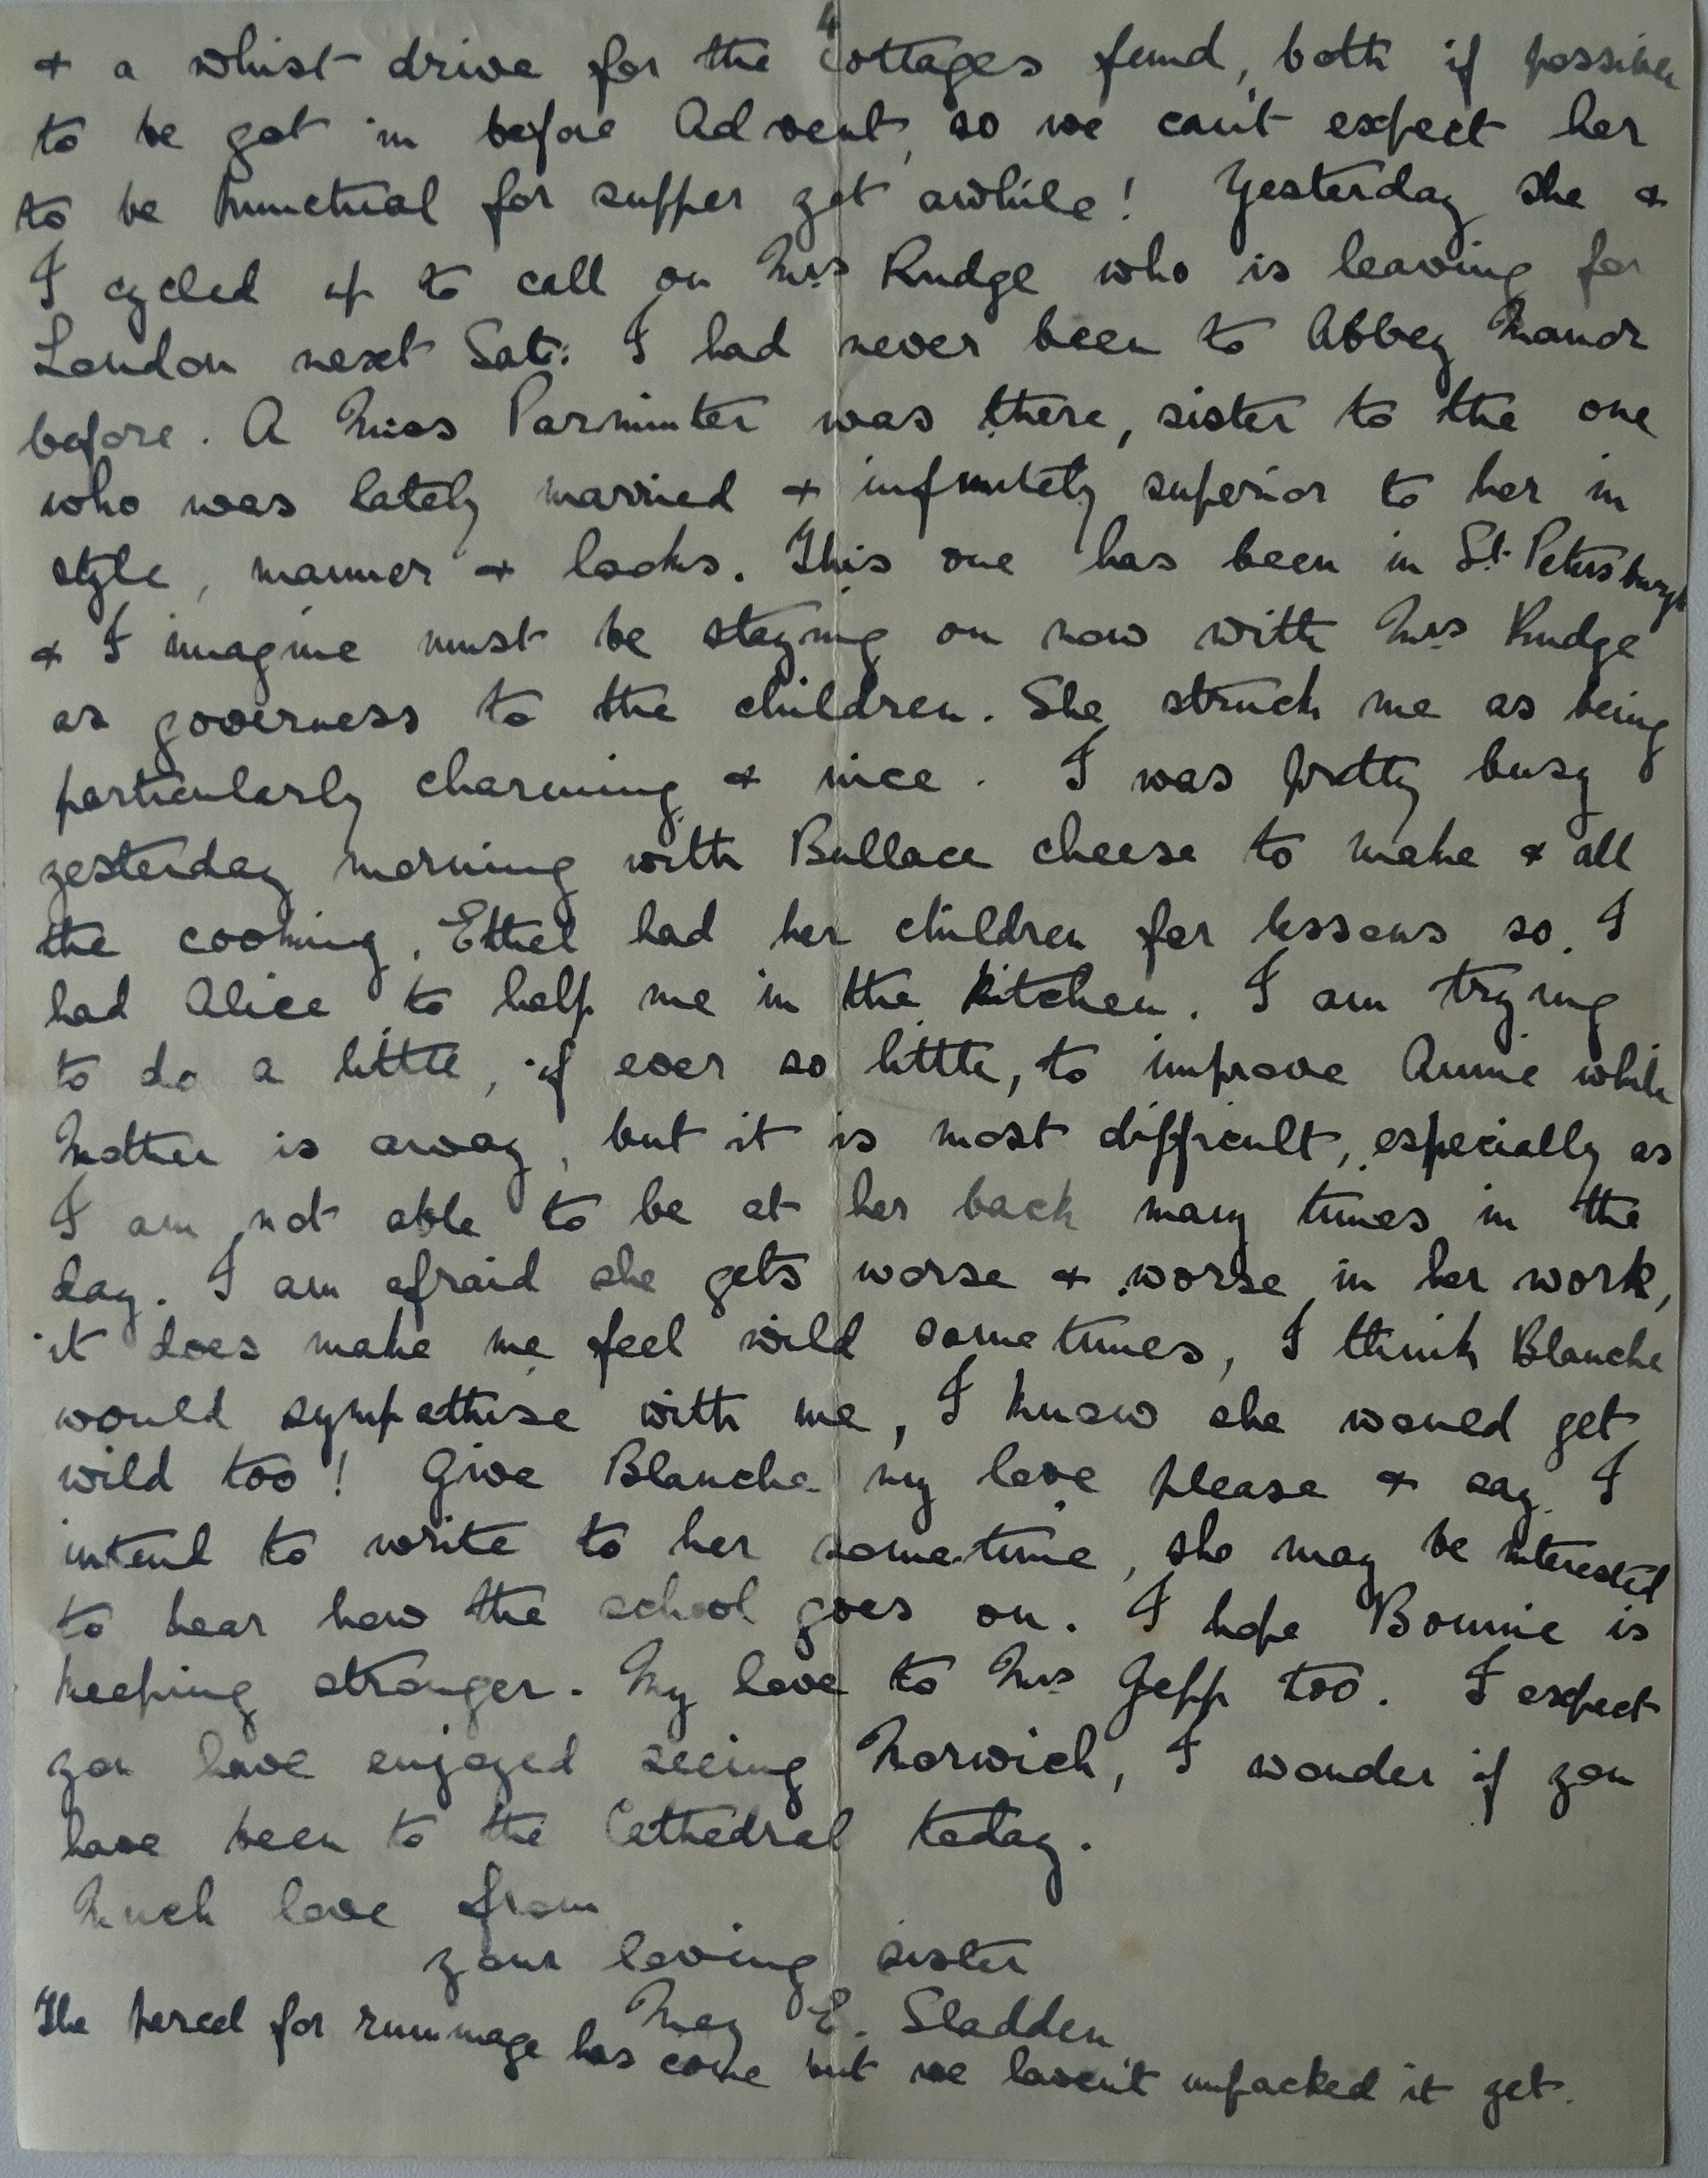 4
& a whist drive for the Cottages fund, both if possible
to be got in before Advent, so we can't expect her
to be punctual for supper yet awhile! Yesterday she &
I cycled up to call on Mrs Rudge who is leaving for
London next Sat: I had never been to Abbey Manor
before. A Miss Parminter was there, sister to the one
who was lately married & infinitely superior to her in
style, manner & looks. This one has been in St. Petersburgh
& I imagine must be staying on now with Mrs Rudge
as governess to the children. She struck me as being
particularly charming & nice. I was pretty busy
yesterday morning with Bullace cheese to make & all
the cooking, Ethel had her children for lessons so I
had Alice to help me in the kitchen. I am trying
to do a little, if ever so little, to improve Annie while
Mother is away, but it is most difficult, especially as
I am not able to be at her back many times in the
day. I am afraid she gets worse & worse in her work,
it does make me feel wild sometimes, I think Blanche
would sympathise with me, I know she would get
wild too! Give Blanche my love please & say I
intend to write to her sometime, she may be interested
to hear how the school goes on. I hope Bonnie is
keeping stronger. My love to Mrs Gepp too. I expect
you have enjoyed seeing Norwich, I wonder if you
have been to the Cathedral today.
Much love from
your loving sister
May E. Sladden
The parcel for rummage has come but we haven't unpacked it yet.